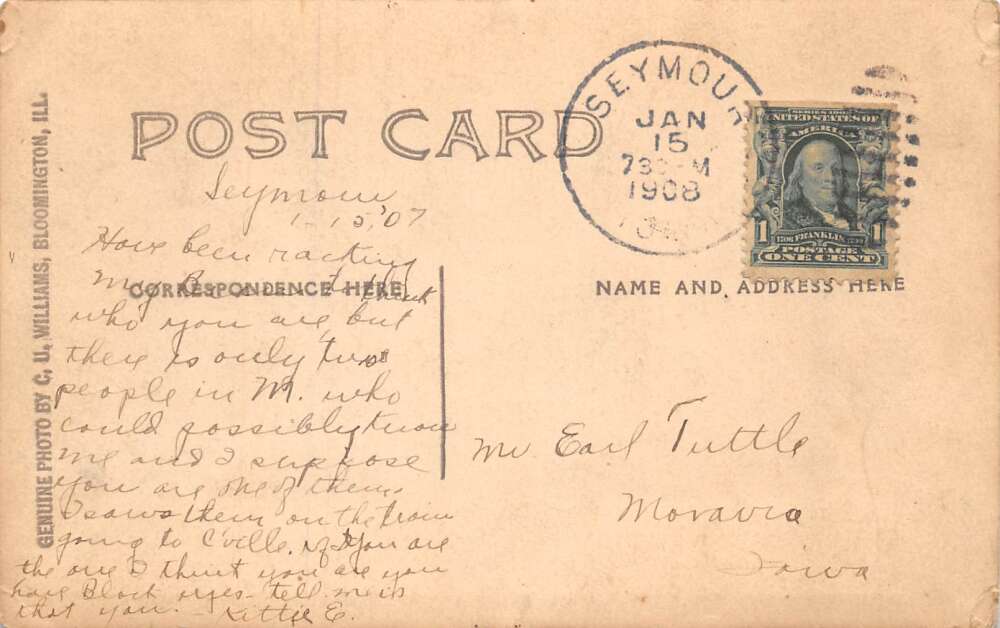 POST CARD
GENUINE PHOTO BY C. U. WILLIAMS, BLOOMINGTON, ILL.
SEYMOUR
JAN
15
1908
SERIES 1902
UNITED STATES OF
AMERICA
1 1706 FRANKLIN 1790 1
POSTAGE
ONE CENT
CORRESPONDENCE HERE
NAME AND ADDRESS HERE
Seymour
1-15,'07
Have been racking
my Brain to think
who you are, but
there is only two
people in M. who
could possibly know
me and I suppose
you are one of them.
I saw them on the train
going to C'ville. If you are
the one I think you are you
have Black eyes - tell me is
that you - Kittie E.
Mr Earl Tuttle
Moravia
Iowa